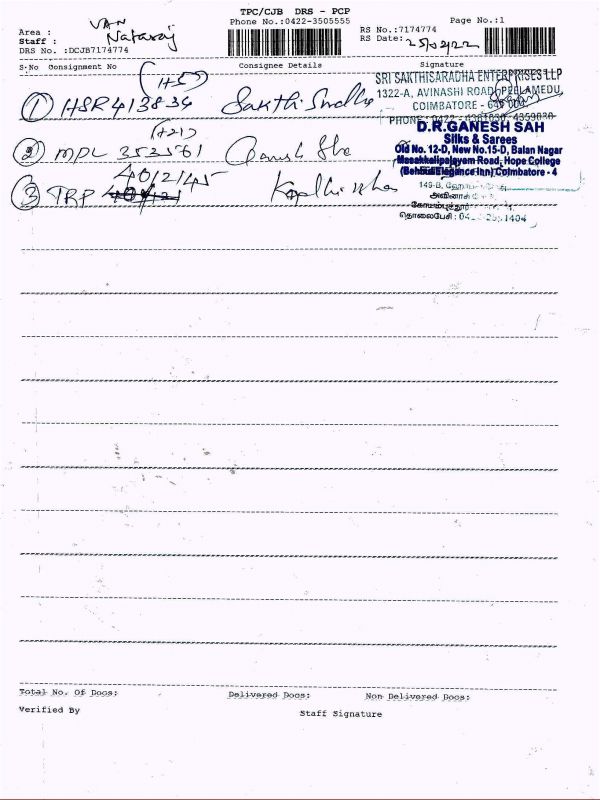 TPC/CJB DRS - PCP
Phone No.:0422-3505555
Page No.:1
Area : VAN
Staff : Nataraj
DRS No. :DCJB7174774
RS No.:7174774
RS Date: 25/02/22
S-No Consignment No Consignee Details Signature
(H55)
① HSR 413834 Sakthi
SRI SAKTHISARADHA ENTERPRISES LLP
1322-A, AVINASHI ROAD, PEELAMEDU,
COIMBATORE -
PHONE: 0422 -
(H21)
② MPL 353561 Ganesh
D.R.GANESH SAH
Silks & Sarees
Old No. 12-D, New No.15-D, Balan Nagar
Masakkalipalayam Road, Hope College
(Behind Elegance Inn) Coimbatore - 4
③ TRP 4012145
தொலைபேசி :
Total No. Of Docs: Delivered Docs: Non Delivered Docs:
Verified By
Staff Signature